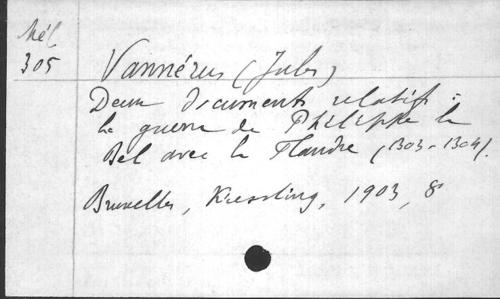 Mél.
305
Vannérus (Jules)
Deux documents relatifs à
la guerre de Philippe le
Bel avec la Flandre (1303-1304).
Bruxelles, Kiessling, 1903, 8°